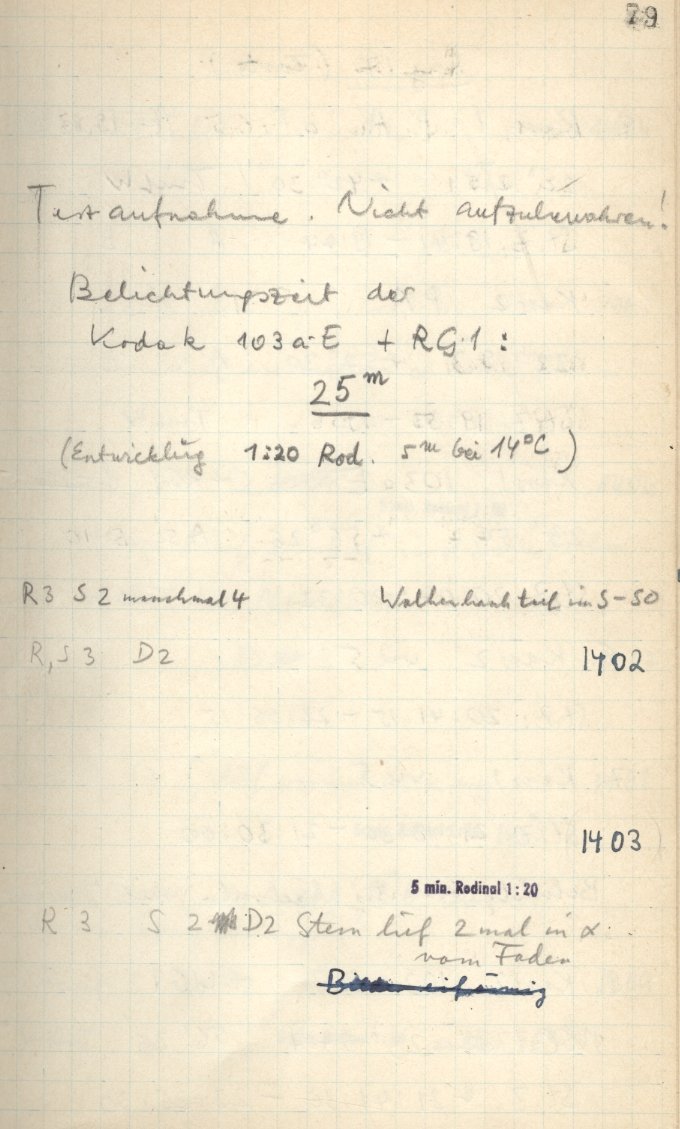 79
Testaufnahme. Nicht aufzubewahren!
Belichtungszeit der
Kodak 103a-E + RG1:
25m
(Entwicklūg 1:20 Rod. 5m bei 14°C)
R3 S2 manchmal 4 Wolkenbank tief im S-SO
R,S3 D2 1402
1403
5 min. Rodinal 1:20
R 3 S 2 D2 Stern lief 2 mal in α
vom Faden
Bilder eiförmig